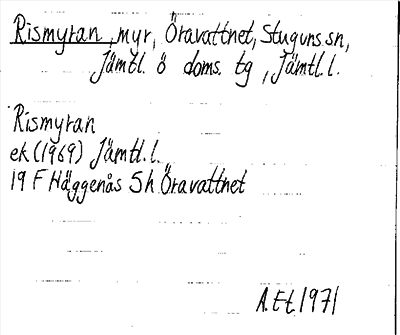 Rismyran, myr, Öravattnet, Stuguns sn,
Jämtl. ö doms. tg, Jämtl. l.
Rismyran
ek (1969) Jämtl. l.
19 F Häggenås 5h Öravattnet
A. Et. 1971